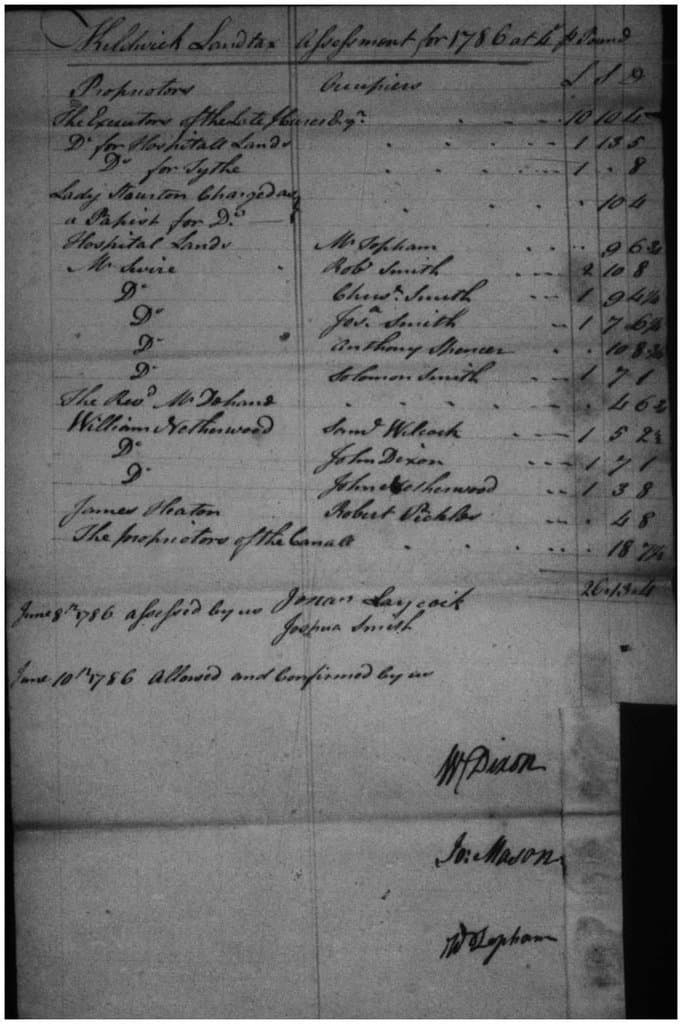 Kildwick Landtax Assessment for 1786 at 4s pr Pound
Proprietors Occupiers £ S D
The Executors of the late Esqr. - - - 10 10 4
Do for Hospitall Lands - - - 1 13 5
Do for Tythe - - - 1 " 8
Lady Charged as
a Papist for Do - - - 10 4
Hospital Lands Mr Topham - - 9 6¾
Mr Swire Robt Smith - - 2 10 8
Do Chrisr. Smith - - 1 9 4½
Do Josa Smith - - 1 7
Do Anthony Spencer - - 10 8¾
Do Solomon Smith - - 1 7 1
The Revd Mr Dehane - - - 4 6¾
William Netherwood Saml Wilcock - - 1 5
Do John Dixon - - 1 7 1
Do John Netherwood - - 1 3 8
James Heaton Robert Pickles - - 4 8
The proprietors of the Canall - - - 18
26 13 4
June 8th 1786 assessed by us Jonan Laycock
Joshua Smith
June 10th 1786 Allowed and Confirmed by us
W Dixon
Jo: Mason
Wd Topham